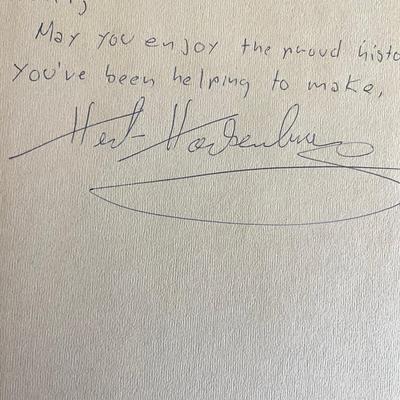 May you enjoy the proud histo
You've been helping to make,
Herb